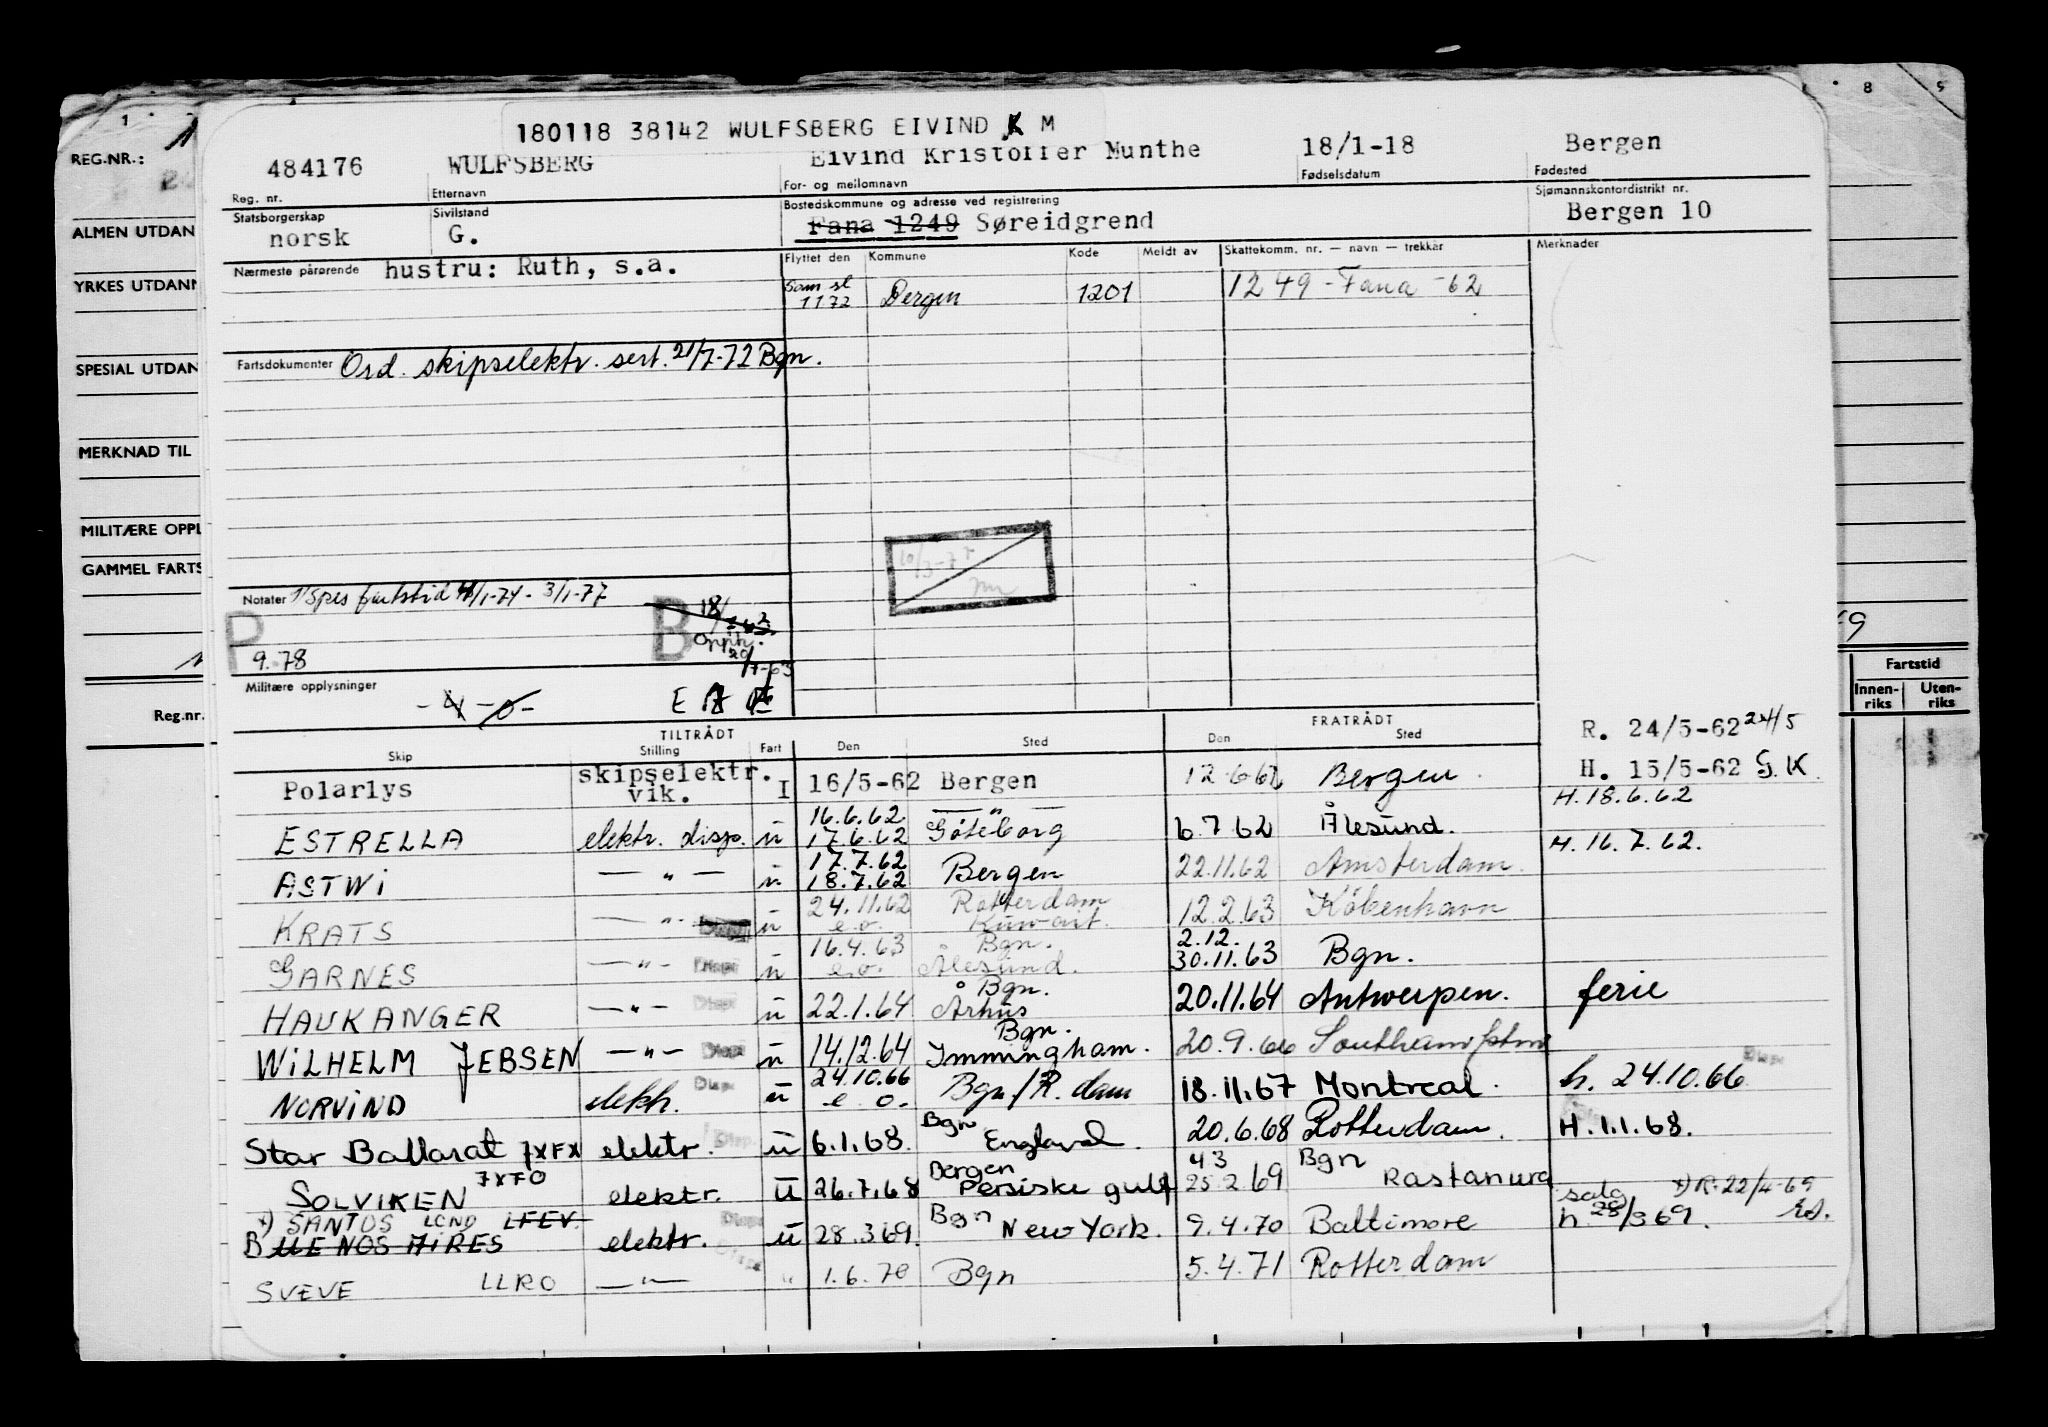 1 8 9
REG.NR.:
180118 38142 WULFSBERG EIVIND K M
484176 WULFSBERG Eivind Kristoffer Munthe 18/1-18 Bergen
Reg. nr. Etternavn For- og mellomnavn Fødselsdatum Fødested
Statsborgerskap Sivilstand Bostedskommune og adresse ved registrering Sjømannskontordistrikt nr.
norsk G. Fana 1249 Søreidgrend Bergen 10
ALMEN UTDAN
Nærmeste pårørende hustru: Ruth, s.a. Flyttet den Kommune Kode Meldt av Skattekomm. nr. — navn — trekkår Merknader
YRKES UTDANN
1172 Bergen 1201 1249 - Fana -62
SPESIAL UTDAN
Fartsdokumenter Ord. skipselektr. sert. 21/7-72 Bgn.
MERKNAD TIL
MILITÆRE OPPL
GAMMEL FARTS
Notater Spes fartstid /1-74 - 3/1-77
P B 18/
Opph.
9.78 20/7-63
Militære opplysninger
Fartstid
Innen-riks Uten-riks
Reg.nr.
TILTRÅDT FRATRÅDT R. 24/5-62 24/5
Skip Stilling Fart Den Sted Den Sted
Polarlys skipselektr. vik. I 16/5-62 Bergen 12.6.62 Bergen. H. 15/5-62 G.K.
H. 18.6.62
16.6.62 — " —
ESTRELLA elektr. disp. u 17.6.62 Göteborg 6.7.62 Ålesund.
H. 16.7.62.
17.7.62
ASTWI — " — u 18.7.62 Bergen 22.11.62 Amsterdam.
24.11.62 Rotterdam
KRATS — " - u e.o. Kuwait. 12.2.63 København
16.4.63 Bgn. 2.12.
GARNES — " — Disp u e.o. Ålesund. 30.11.63 Bgn.
Bgn.
HAUKANGER — " — Disp u 22.1.64 Århus 20.11.64 Antwerpen. ferie
Bgn.
WILHELM JEBSEN — " — Disp u 14.12.64 Immingham. 20.9.66 Southampton
24.10.66
NORVIND elektr. Disp u e.o. Bgn/R.dam 18.11.67 Montreal. h. 24.10.66 Disp
Bgn
Star Ballarat JXFX elektr. Disp. u 6.1.68. England 20.6.68 Rotterdam. H.1.1.68.
JXFO Bergen 43 Bgn
SOLVIKEN elektr. u 26.7.68 Persiske gulf 25.2.69 Rastanura salg x) R. 22/4-69
x) SANTOS LCND LFEV. Bgn
BUENOS AIRES elektr. Disp u 28.3.69. New York. 9.4.70 Baltimore h 28/3 69.
SVEVE LLRO — " — Disp " 1.6.70 Bgn 5.4.71 Rotterdam